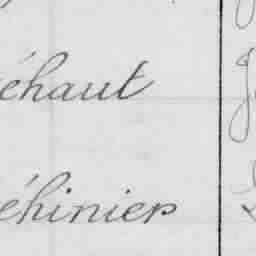 éhaut
éhinier